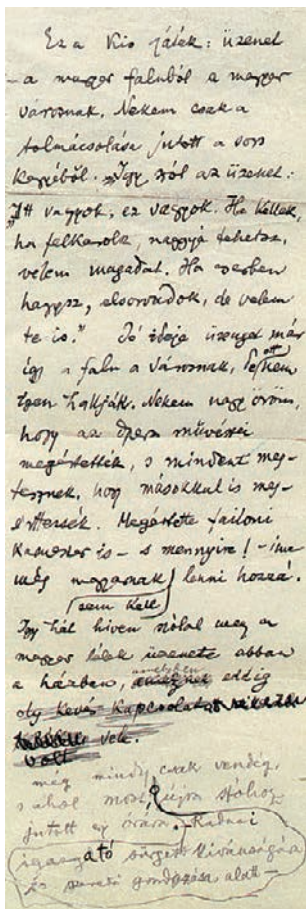 Ez a kis játék: üzenet
– a magyar faluból a magyar
városnak. Nekem csak a
tolmácsolása jutott a sors
kegyéből. „Így szól az üzenet:
„Itt vagyok, ez vagyok. Ha kellek,
ha felkarolsz, naggyá tehetsz,
velem magadat. Ha veszben
hagysz, elsorvadok, de velem
te is." Jó ideje üzenget már
így a falu a városnak, de ott nem
igen hallják. Nekem nagy öröm,
hogy az Opera művészei
megértették, s mindent meg-
tesznek, hogy másokkal is meg-
értessék. Megértette Failoni
karmester is – s mennyire! – íme
még magyarnak lenni hozzá.
sem kell
Így hát híven szólal meg a
magyar lélek üzenete abban
a házban, amelyben eddig
oly kevés kapcsolat
volt vele.
még mindig csak vendég,
s ahol most újra szóhoz
jutott egy órára. Radnai
igazgató sürgető kívánságára
és gondozása alatt –